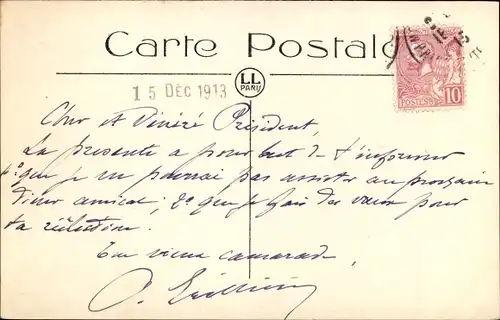 Carte Postale
15 DÉC 1913
LL
PARIS
POSTES 10
Cher et Vénéré Président,
La présente a pour but de t'informer
1° que je ne pourrai pas assister au prochain
diner amical; 2° que je fais des vœux pour
ta réélection.
Ton vieux camarade,